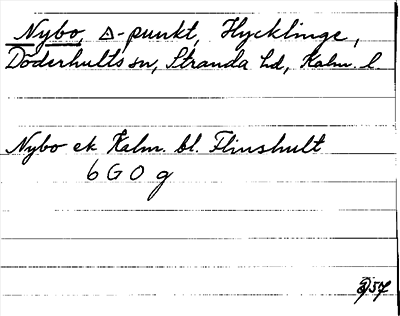 Nybo, △-punkt, Hycklinge,
Döderhults sn, Stranda hd, Kalm. l.
Nybo ek Kalm. bl. Flinshult
6 G 0 g